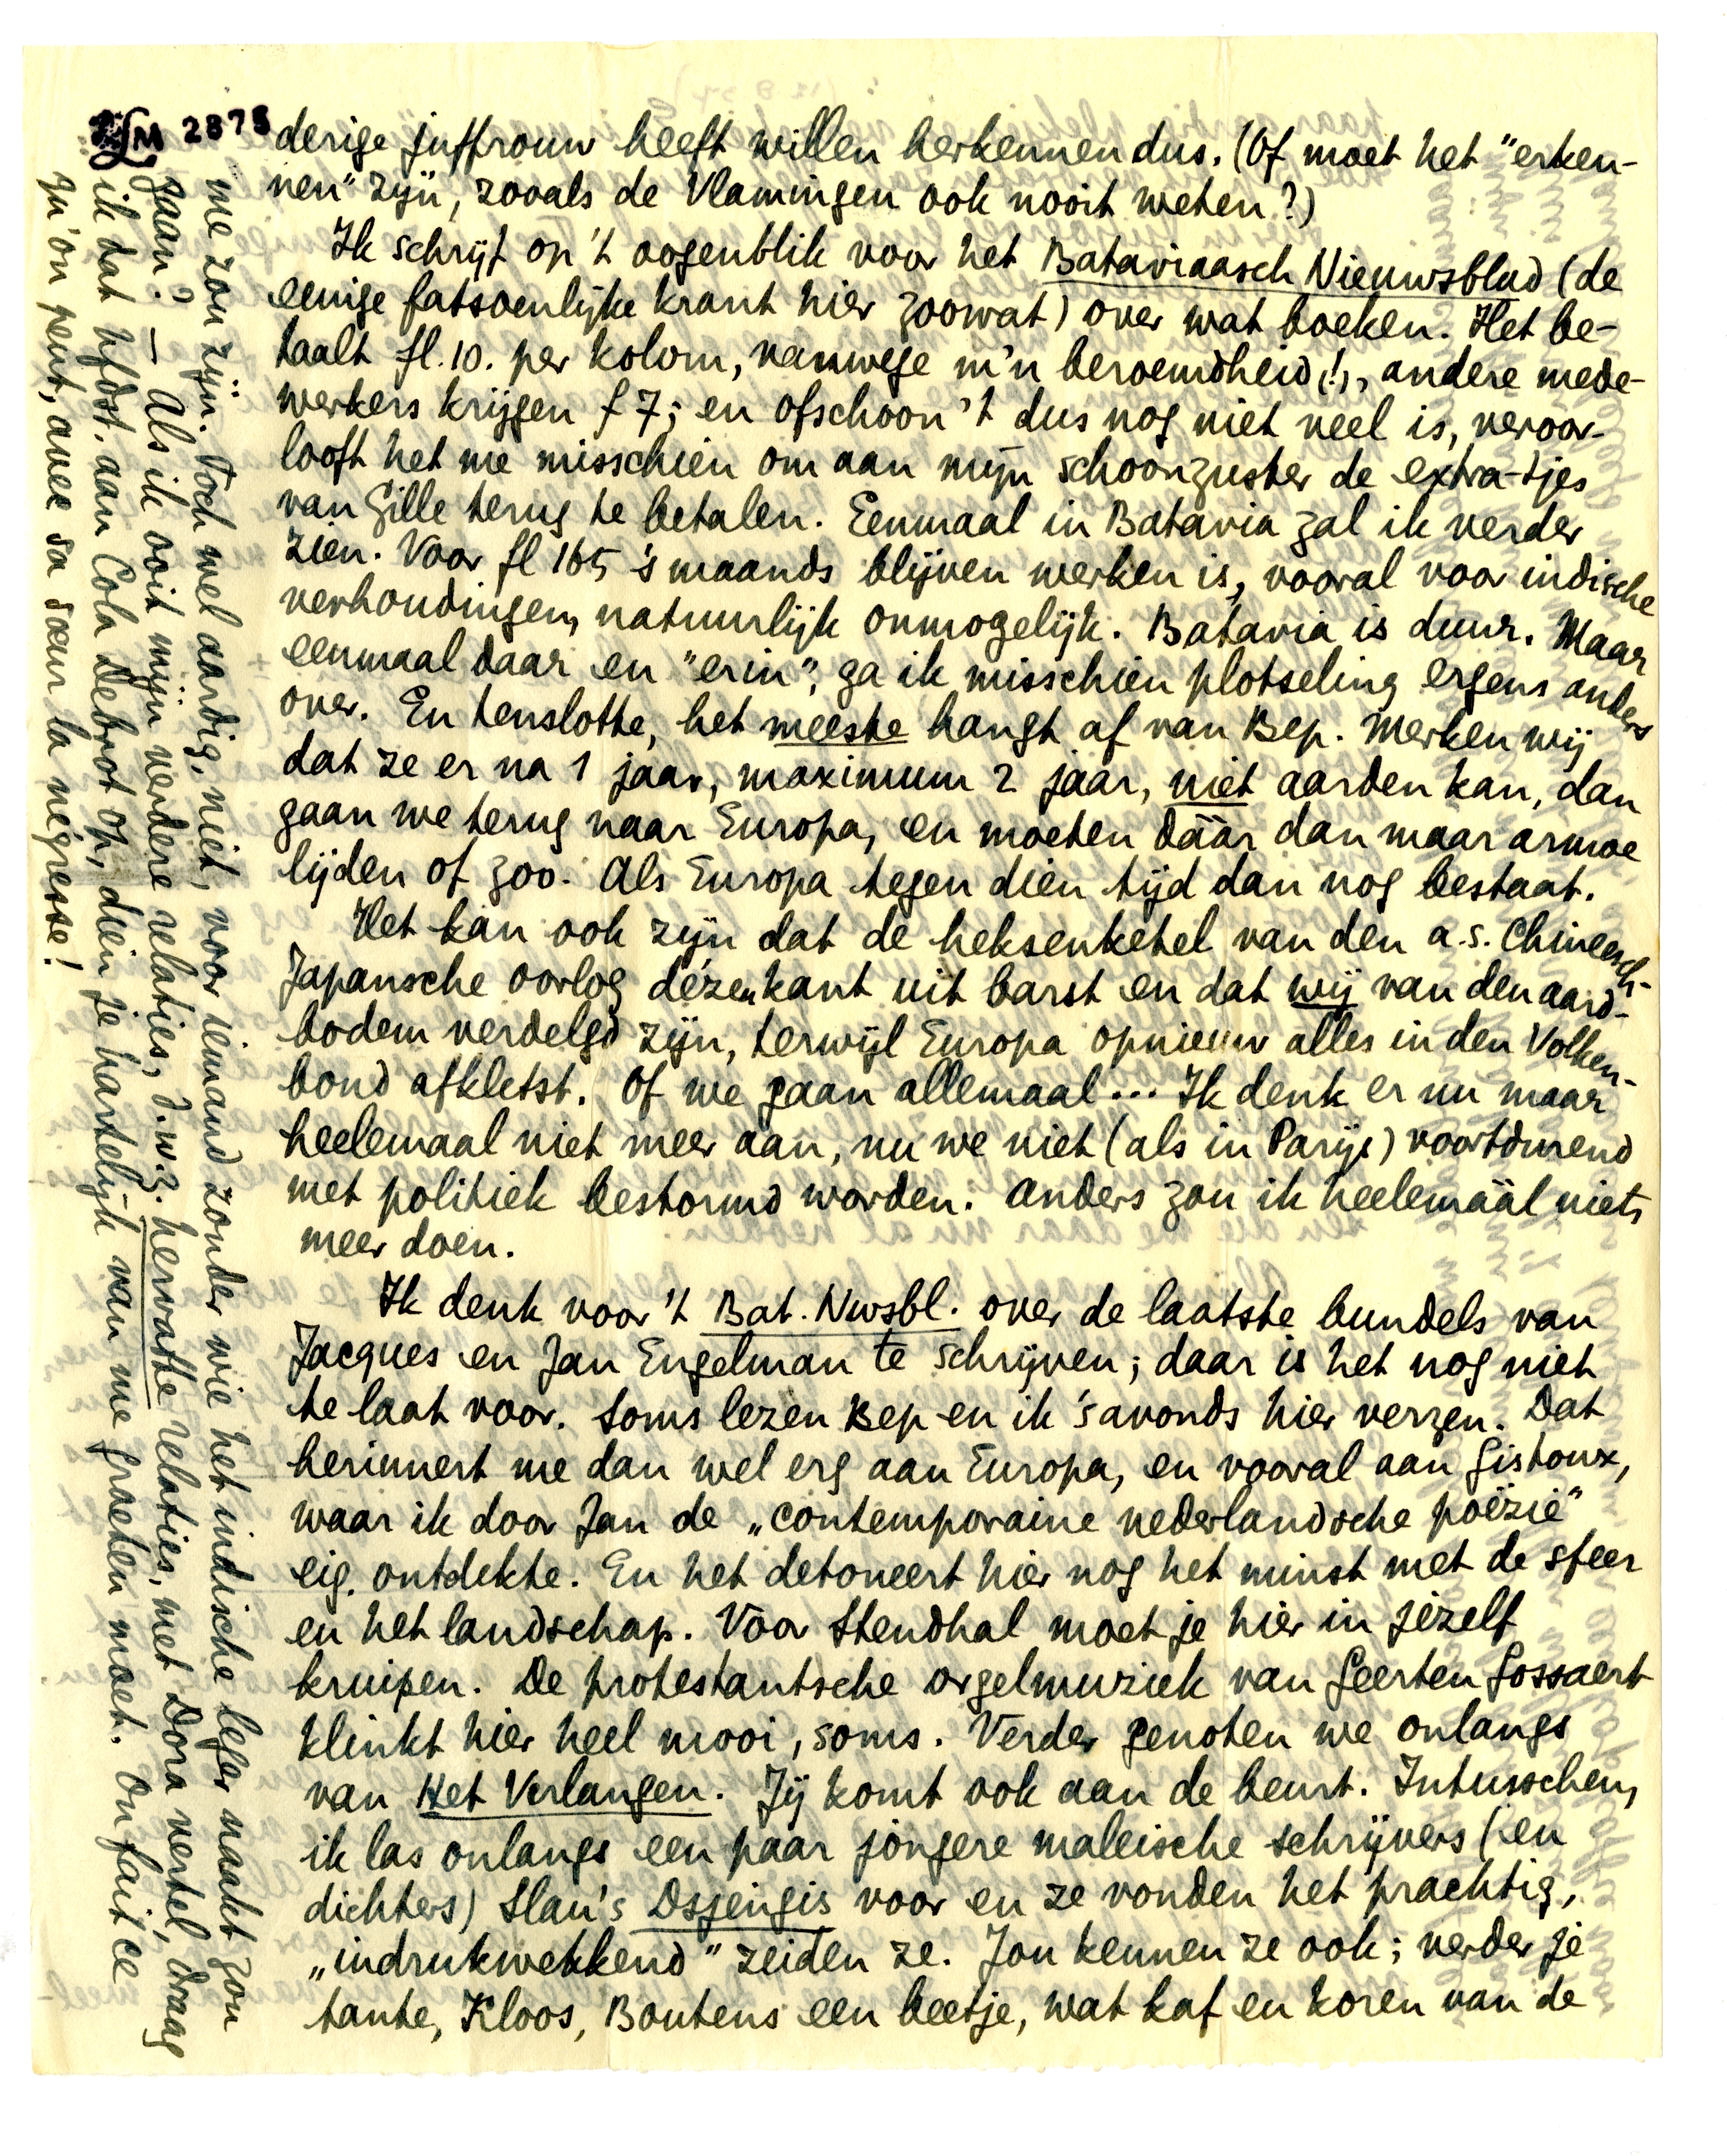 LM 2878
derige juffrouw heeft willen herkennen dus. (Of moet het "erken-
nen" zijn, zooals de Vlamingen ook nooit weten?)
Ik schrijf op 't oogenblik voor het Bataviaasch Nieuwsblad (de
eenige fatsoenlijke krant hier zoowat) over wat boeken. Het be-
taalt fl. 10. per kolom, vanwege m'n beroemdheid (!), andere mede-
werkers krijgen f 7; en ofschoon 't dus nog niet veel is, veroor-
looft het me misschien om aan mijn schoonzuster de extra-tjes
van Gille terug te betalen. Eenmaal in Batavia zal ik verder
zien. Voor fl 165 's maands blijven werken is, vooral voor indische
verhoudingen, natuurlijk onmogelijk. Batavia is duur. Maar
eenmaal daar en "erin", ga ik misschien plotseling ergens anders
over. En tenslotte, het meeste hangt af van Bep. Merken wij
dat ze er na 1 jaar, maximum 2 jaar, niet aarden kan, dan
gaan we terug naar Europa, en moeten dáár dan maar armoe
lijden of zoo. Als Europa tegen dien tijd dan nog bestaat.
Het kan ook zijn dat de heksenketel van den a.s. Chineesch-
Japansche oorlog dézen kant uit barst en dat wij van den aard-
bodem verdelgd zijn, terwijl Europa opnieuw alles in den Volken-
bond afkletst. Of we gaan allemaal... Ik denk er nu maar
heelemaal niet meer aan, nu we niet (als in Parijs) voortdurend
met politiek bestormd worden. Anders zou ik heelemáál niets
meer doen.
Ik denk voor 't Bat. Nwsbl. over de laatste bundels van
Jacques en Jan Engelman te schrijven; daar is het nog niet
te laat voor. Soms lezen Bep en ik 's avonds hier verzen. Dat
herinnert me dan wel erg aan Europa, en vooral aan Gistoux,
waar ik door Jan de „contemporaine nederlandsche poëzie"
eig. ontdekte. En het detoneert hier nog het minst met de sfeer
en het landschap. Voor Stendhal moet je hier in jezelf
kruipen. De protestantsche orgelmuziek van Geerten Gossaert
klinkt hier heel mooi, soms. Verder genoten we onlangs
van Het Verlangen. Jij komt ook aan de beurt. Intusschen,
ik las onlangs een paar jongere maleische schrijvers (en
dichters) Slau's Dsjengis voor en ze vonden het prachtig,
„indrukwekkend" zeiden ze. Jou kennen ze ook; verder je
tante, Kloos, Boutens een beetje, wat kaf en koren van de
me zou zijn. Toch wel aardig, niet, voor iemand zonder wie het indische leger naakt zou
gaan? — Als ik ooit mijn verdere relaties, d.w.z. hervatte relaties, met Dora vertel, draag
ik dat hfdst. aan Cola Debrot op, dien je hartelijk van me groeten moet. On fait ce
qu'on peut, avec sa sœur la négresse!